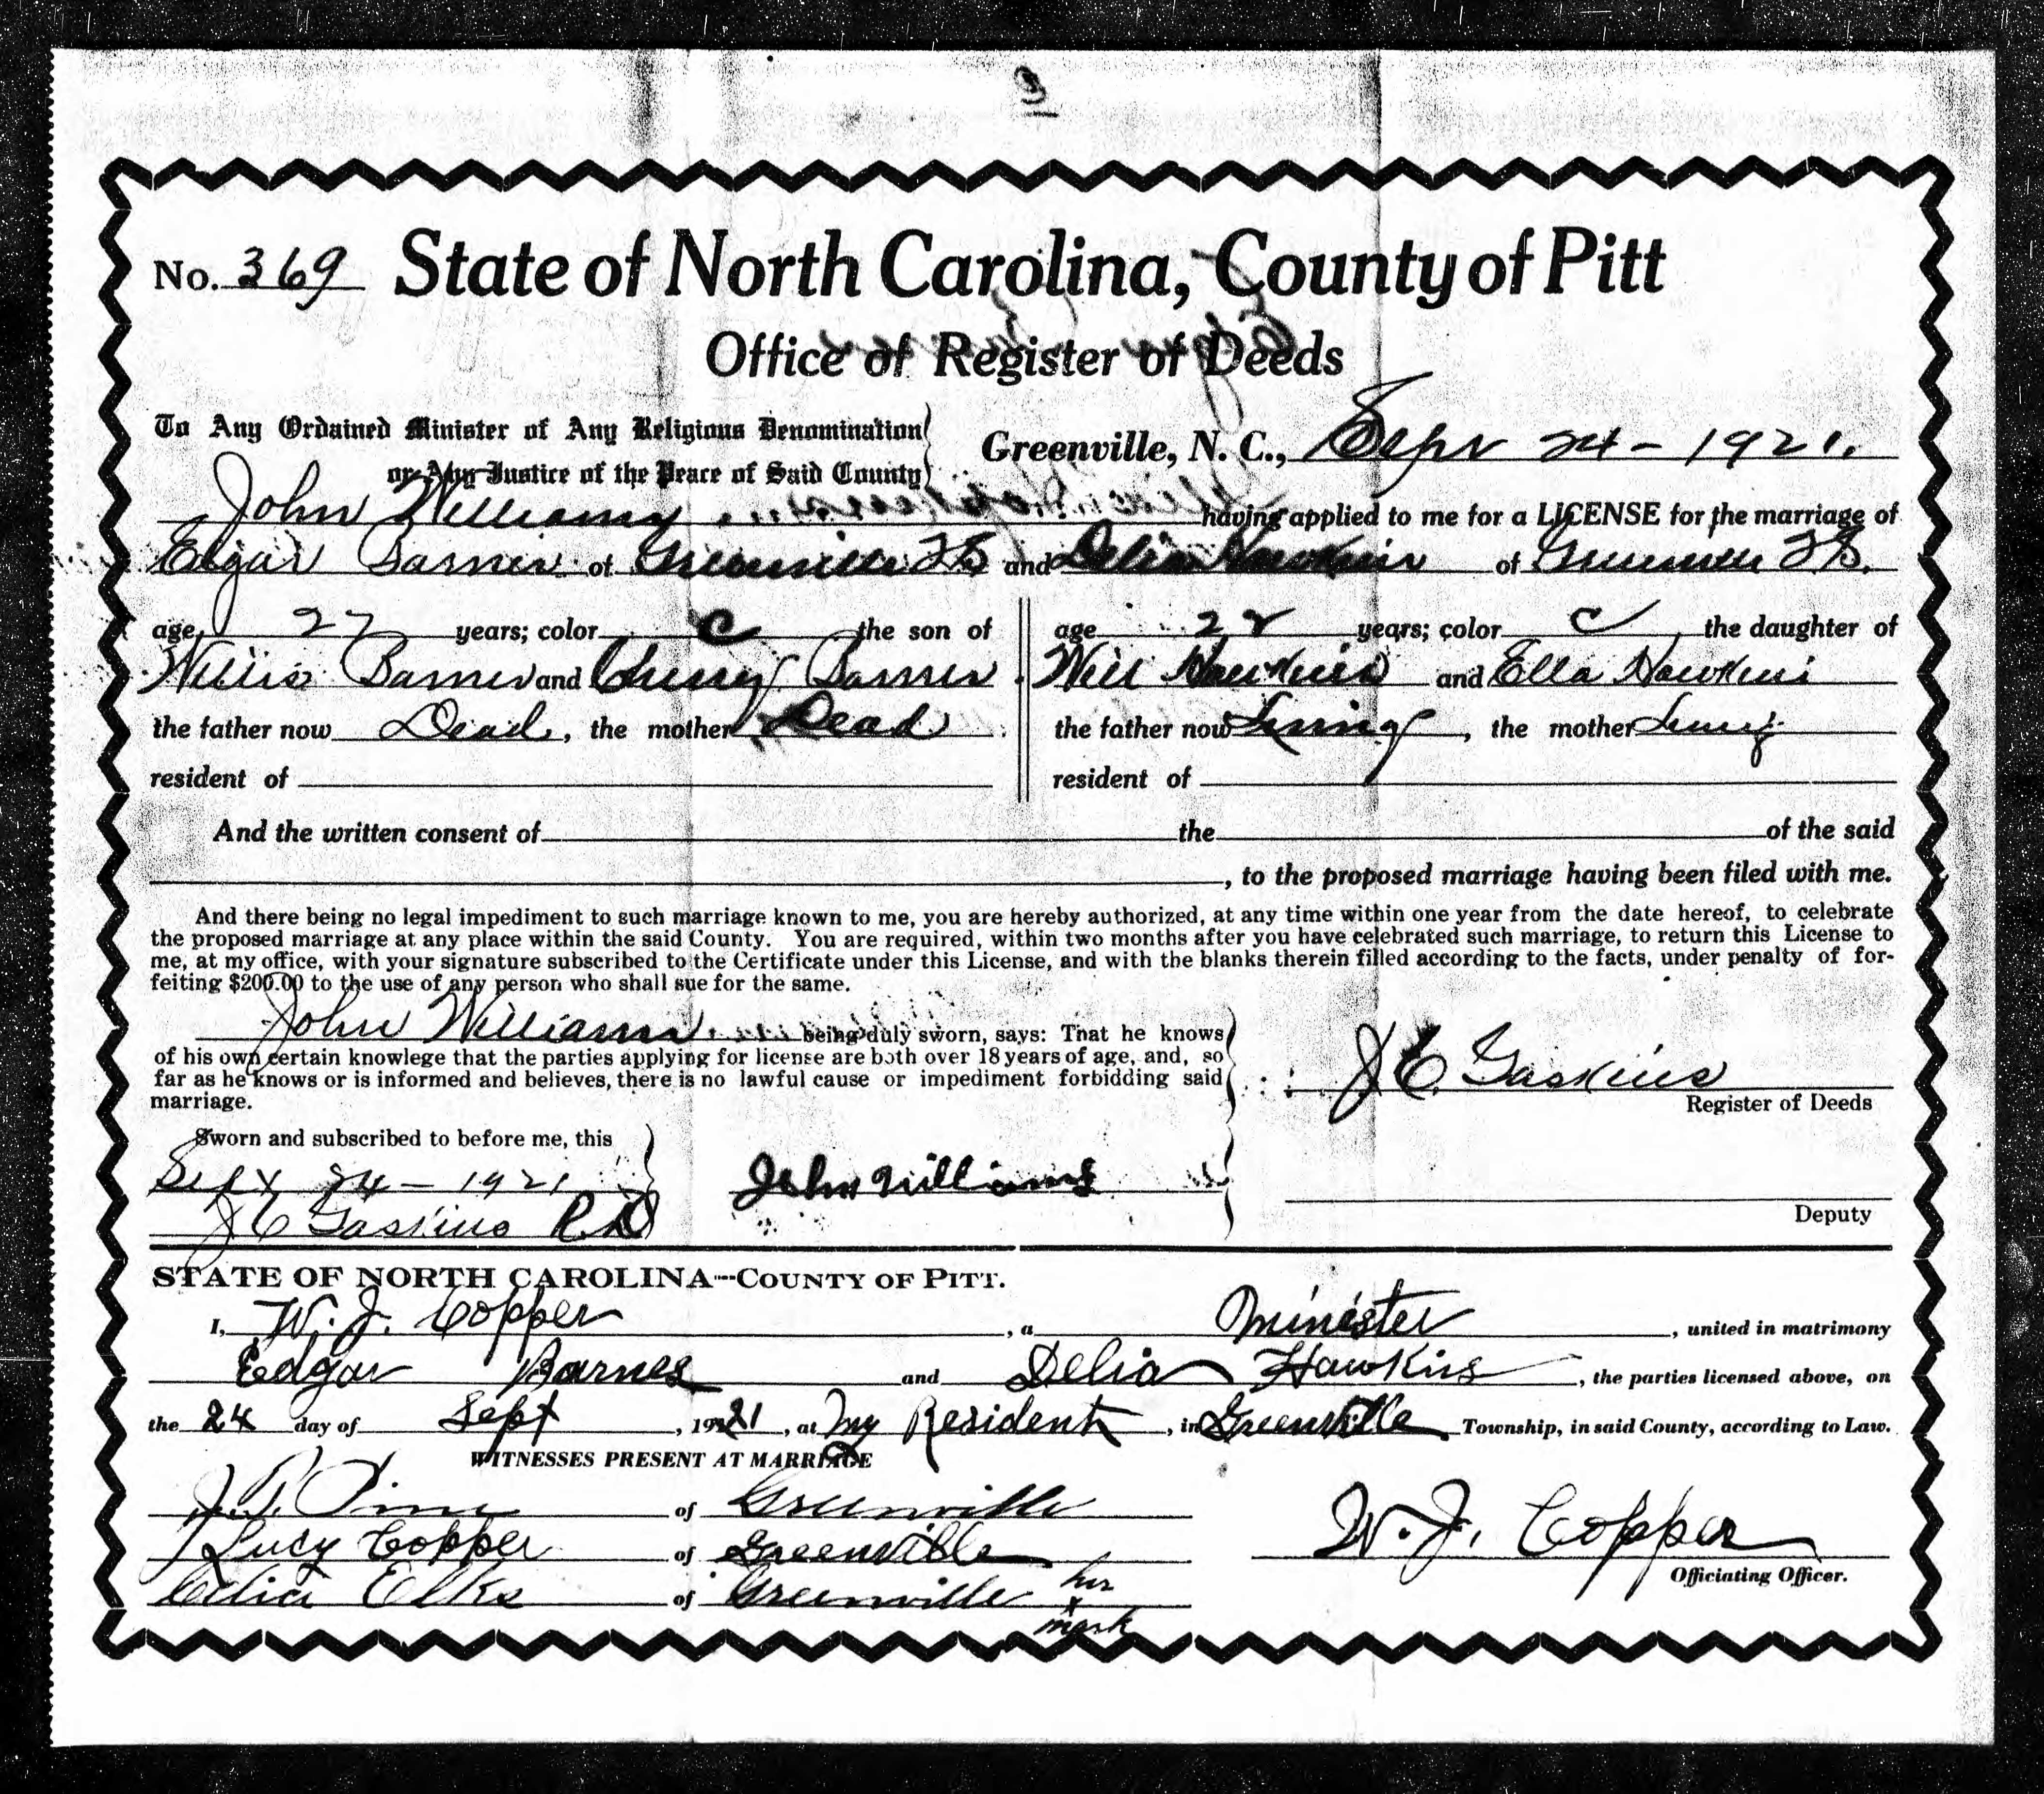 No. 369 State of North Carolina, County of Pitt
Office of Register of Deeds
To Any Ordained Minister of Any Religious Denomination
or Any Justice of the Peace of Said County
Greenville, N. C., Sept 24 - 1921.
John Williams having applied to me for a LICENSE for the marriage of
Edgar Barnes of Greenville and Delia Hawkins of Greenville
age 27 years; color C the son of
Willis Barnes and Cherry Barnes
the father now Dead, the mother Dead
resident of
age 22 years; color C, the daughter of
Will Hawkins and Ella Hawkins
the father now Living, the mother Living
resident of
And the written consent of the of the said
, to the proposed marriage having been filed with me.
And there being no legal impediment to such marriage known to me, you are hereby authorized, at any time within one year from the date hereof, to celebrate
the proposed marriage at any place within the said County. You are required, within two months after you have celebrated such marriage, to return this License to
me, at my office, with your signature subscribed to the Certificate under this License, and with the blanks therein filled according to the facts, under penalty of for-
feiting $200.00 to the use of any person who shall sue for the same.
John Williams being duly sworn, says: That he knows
of his own certain knowlege that the parties applying for license are both over 18 years of age, and, so
far as he knows or is informed and believes, there is no lawful cause or impediment forbidding said
marriage.
J C Gaskins
Register of Deeds
Sworn and subscribed to before me, this
Sept 24 - 1921
J C Gaskins R.D
John Williams
Deputy
STATE OF NORTH CAROLINA---COUNTY OF PITT.
I, W. J. Copper, a minister, united in matrimony
Edgar Barnes and Delia Hawkins, the parties licensed above, on
the 24 day of Sept, 1921, at my Resident, in Greenville Township, in said County, according to Law.
WITNESSES PRESENT AT MARRIAGE
of Greenville
Lucy Copper of Greenville
Celia Elks of Greenville her x mark
W. J. Copper
Officiating Officer.